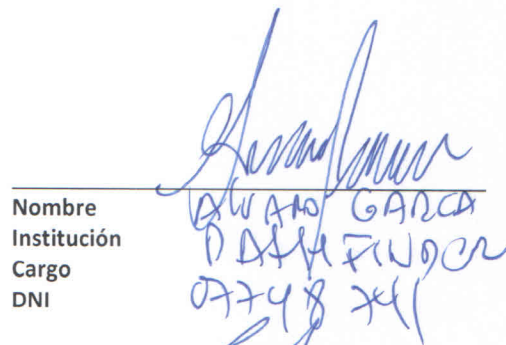 Nombre ALVARO GARCIA
Institución PATHFINDER
Cargo
DNI 07748741